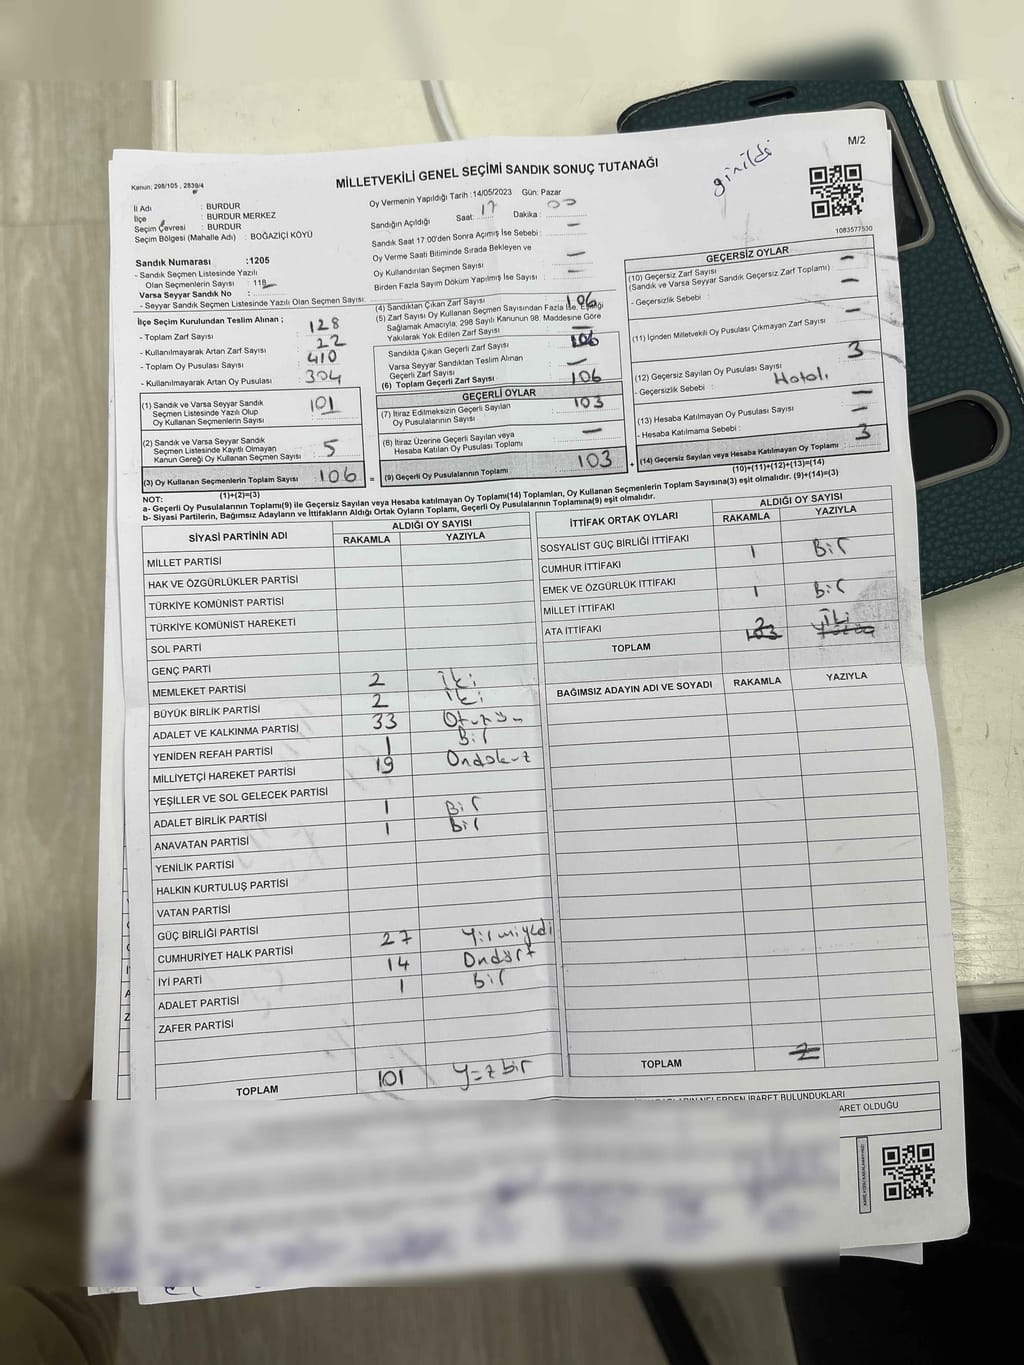 girildi
M/2
Kanun: 298/105 , 2839/4
MİLLETVEKİLİ GENEL SEÇİMİ SANDIK SONUÇ TUTANAĞI
1083577530
İl Adı : BURDUR
İlçe : BURDUR MERKEZ
Seçim Çevresi : BURDUR
Seçim Bölgesi (Mahalle Adı) : BOĞAZİÇİ KÖYÜ
Sandık Numarası :1205
- Sandık Seçmen Listesinde Yazılı
Olan Seçmenlerin Sayısı :
Varsa Seyyar Sandık No :
- Seyyar Sandık Seçmen Listesinde Yazılı Olan Seçmen Sayısı:
Oy Vermenin Yapıldığı Tarih :14/05/2023 Gün: Pazar
Sandığın Açıldığı Saat: 17 Dakika : 00
Sandık Saat 17:00'den Sonra Açımış İse Sebebi : —
Oy Verme Saati Bitiminde Sırada Bekleyen ve
Oy Kullandırılan Seçmen Sayısı —
Birden Fazla Sayım Döküm Yapılmış İse Sayısı : —
İlçe Seçim Kurulundan Teslim Alınan ;
- Toplam Zarf Sayısı : 128
- Kullanılmayarak Artan Zarf Sayısı : 22
- Toplam Oy Pusulası Sayısı : 410
- Kullanılmayarak Artan Oy Pusulası : 304
(1) Sandık ve Varsa Seyyar Sandık
Seçmen Listesinde Yazılı Olup
Oy Kullanan Seçmenlerin Sayısı : 101
(2) Sandık ve Varsa Seyyar Sandık
Seçmen Listesinde Kayıtlı Olmayan
Kanun Gereği Oy Kullanan Seçmen Sayısı : 5
(3) Oy Kullanan Seçmenlerin Toplam Sayısı : 106 =
(1)+(2)=(3)
(4) Sandıktan Çıkan Zarf Sayısı 106
(5) Zarf Sayısı Oy Kullanan Seçmen Sayısından Fazla İse, Eşitliği
Sağlamak Amacıyla; 298 Sayılı Kanunun 98. Maddesine Göre
Yakılarak Yok Edilen Zarf Sayısı —
Sandıkta Çıkan Geçerli Zarf Sayısı 106
Varsa Seyyar Sandıktan Teslim Alınan
Geçerli Zarf Sayısı : —
(6) Toplam Geçerli Zarf Sayısı : 106
GEÇERLİ OYLAR
(7) İtiraz Edilmeksizin Geçerli Sayılan
Oy Pusulalarının Sayısı : 103
(8) İtiraz Üzerine Geçerli Sayılan veya
Hesaba Katılan Oy Pusulası Toplamı —
(9) Geçerli Oy Pusulalarının Toplamı : 103 +
GEÇERSİZ OYLAR
(10) Geçersiz Zarf Sayısı —
(Sandık ve Varsa Seyyar Sandık Geçersiz Zarf Toplamı)
- Geçersizlik Sebebi : —
(11) İçinden Milletvekili Oy Pusulası Çıkmayan Zarf Sayısı —
(12) Geçersiz Sayılan Oy Pusulası Sayısı : 3
- Geçersizlik Sebebi : Hatalı
(13) Hesaba Katılmayan Oy Pusulası Sayısı —
- Hesaba Katılmama Sebebi : —
(14) Geçersiz Sayılan veya Hesaba Katılmayan Oy Toplamı : 3
(10)+(11)+(12)+(13)=(14)
NOT:
a- Geçerli Oy Pusulalarının Toplamı(9) ile Geçersiz Sayılan veya Hesaba katılmayan Oy Toplamı(14) Toplamları, Oy Kullanan Seçmenlerin Toplam Sayısına(3) eşit olmalıdır. (9)+(14)=(3)
b- Siyasi Partilerin, Bağımsız Adayların ve İttifakların Aldığı Ortak Oyların Toplamı, Geçerli Oy Pusulalarının Toplamına(9) eşit olmalıdır.
SİYASİ PARTİNİN ADI ALDIĞI OY SAYISI
RAKAMLA YAZIYLA
MİLLET PARTİSİ
HAK VE ÖZGÜRLÜKLER PARTİSİ
TÜRKİYE KOMÜNİST PARTİSİ
TÜRKİYE KOMÜNİST HAREKETİ
SOL PARTİ
GENÇ PARTİ
MEMLEKET PARTİSİ 2 İki
BÜYÜK BİRLİK PARTİSİ 2 İki
ADALET VE KALKINMA PARTİSİ 33 Otuzüç
YENİDEN REFAH PARTİSİ 1 Bir
MİLLİYETÇİ HAREKET PARTİSİ 19 Ondokuz
YEŞİLLER VE SOL GELECEK PARTİSİ
ADALET BİRLİK PARTİSİ 1 Bir
ANAVATAN PARTİSİ 1 Bir
YENİLİK PARTİSİ
HALKIN KURTULUŞ PARTİSİ
VATAN PARTİSİ
GÜÇ BİRLİĞİ PARTİSİ
CUMHURİYET HALK PARTİSİ 27 Yirmiyedi
İYİ PARTİ 14 Ondört
ADALET PARTİSİ 1 Bir
ZAFER PARTİSİ
TOPLAM 101 Yüzbir
İTTİFAK ORTAK OYLARI ALDIĞI OY SAYISI
RAKAMLA YAZIYLA
SOSYALİST GÜÇ BİRLİĞİ İTTİFAKI
CUMHUR İTTİFAKI 1 Bir
EMEK VE ÖZGÜRLÜK İTTİFAKI
MİLLET İTTİFAKI 1 Bir
ATA İTTİFAKI
TOPLAM 2 İki
BAĞIMSIZ ADAYIN ADI VE SOYADI RAKAMLA YAZIYLA
TOPLAM 2
ARET OLDUĞU